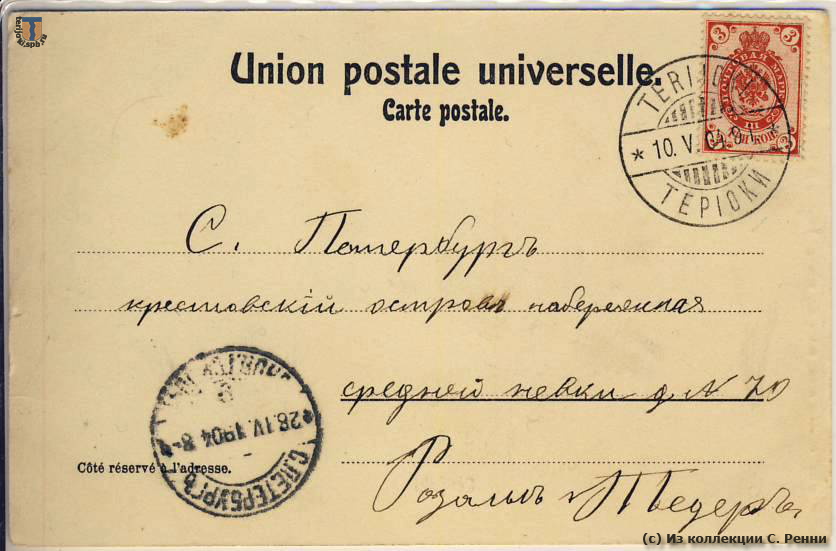 terijoki.spb.ru
Union postale universelle.
Carte postale.
3 3
ПОЧТОВАЯ МАРКА
3
TERIJOKI
* 10. V. 04
ТЕРІОКИ
С. Петербургъ
крестовскій островъ набережная
средней невки д N 70
С.ПЕТЕРБУРГЪ
* 28.IV.1904 8-
Côté réservé à l'adresse.
(c) Из коллекции С. Ренни